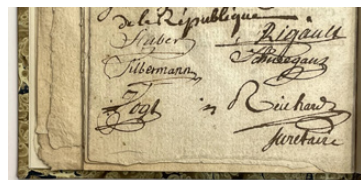 de la République
Stuber Rigault
Silbermann Schweegans
Vogt Reichard
secretaire